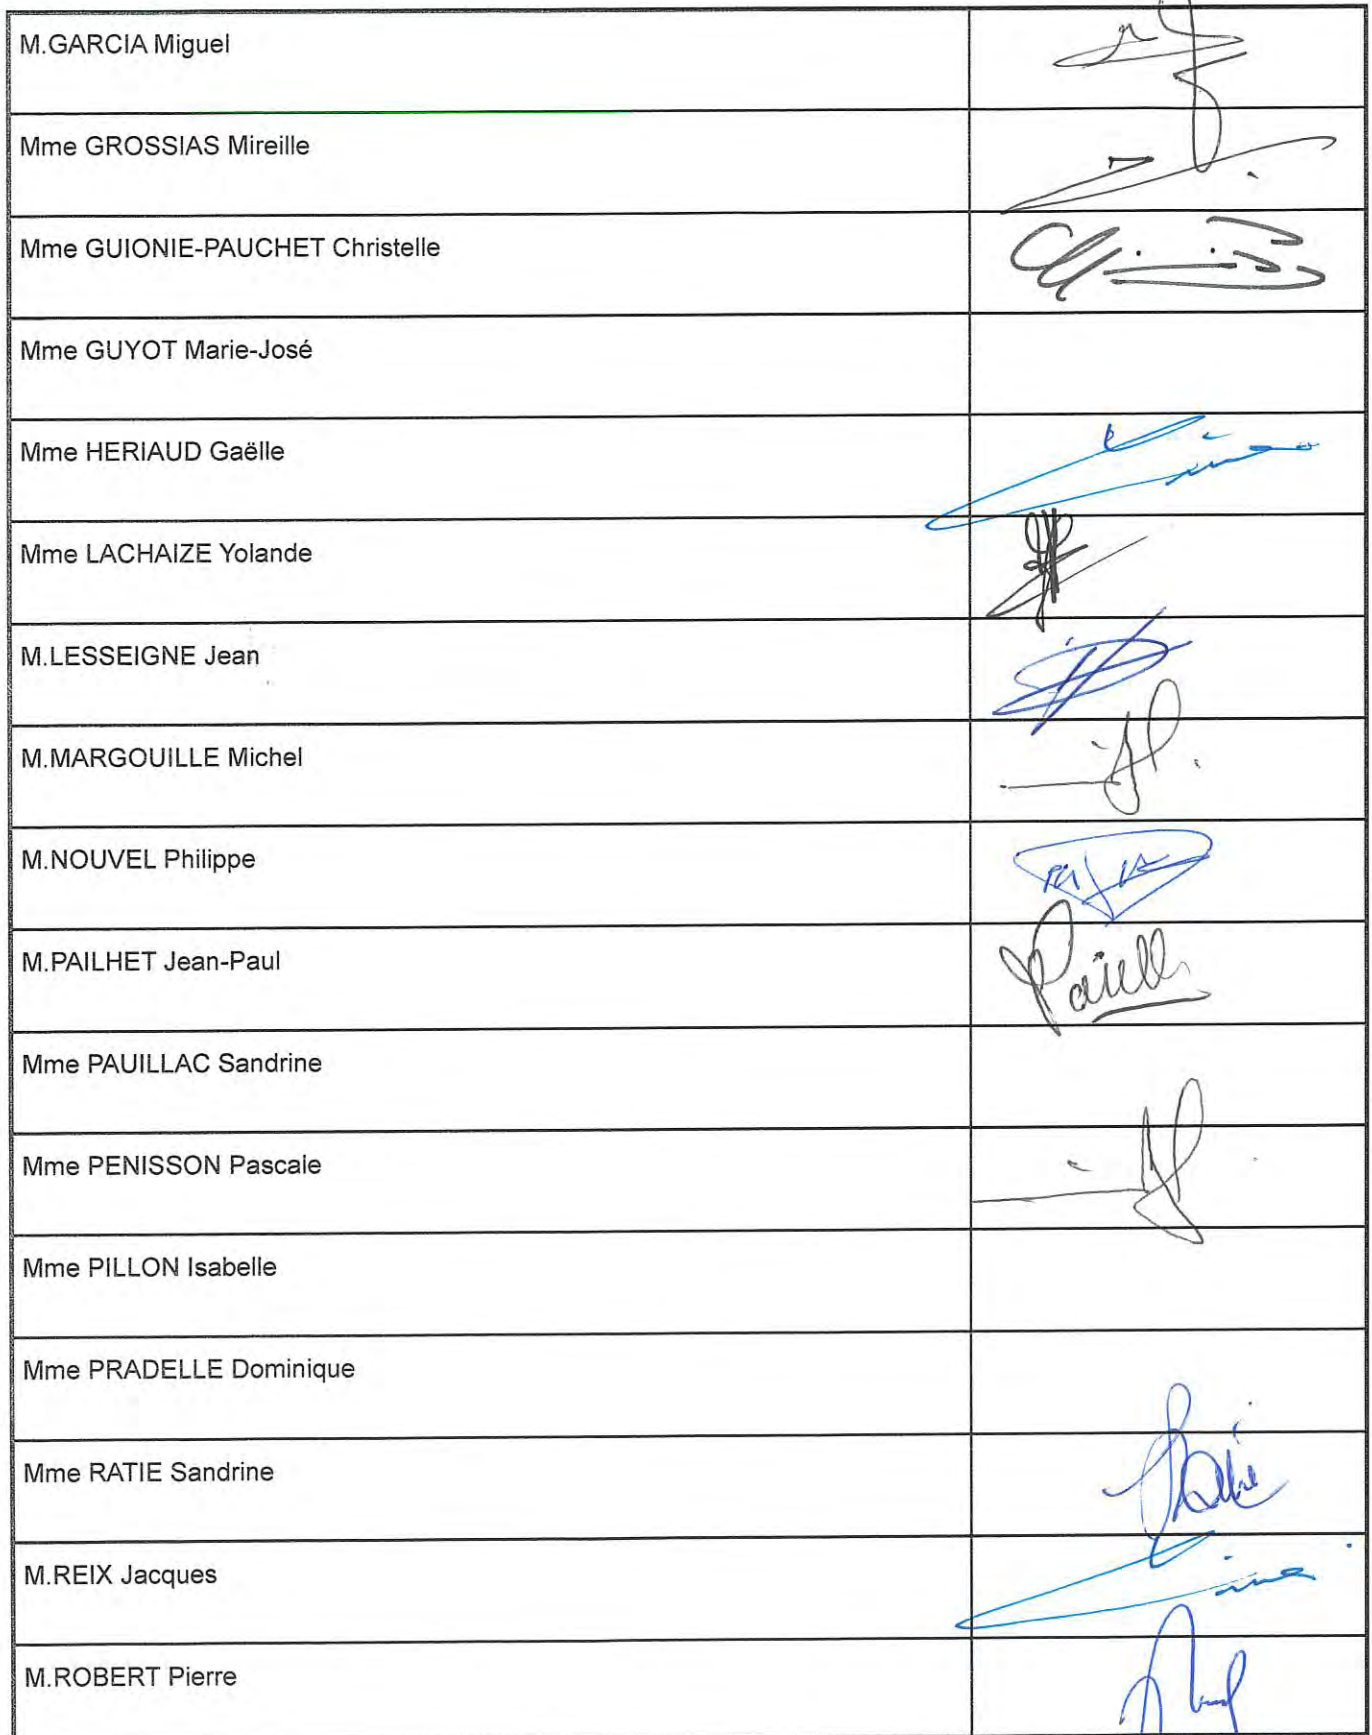 M.GARCIA Miguel
Mme GROSSIAS Mireille
Mme GUIONIE-PAUCHET Christelle
Mme GUYOT Marie-José
Mme HERIAUD Gaëlle
Mme LACHAIZE Yolande
M.LESSEIGNE Jean
M.MARGOUILLE Michel
M.NOUVEL Philippe
M.PAILHET Jean-Paul
Mme PAUILLAC Sandrine
Mme PENISSON Pascale
Mme PILLON Isabelle
Mme PRADELLE Dominique
Mme RATIE Sandrine
M.REIX Jacques
M.ROBERT Pierre